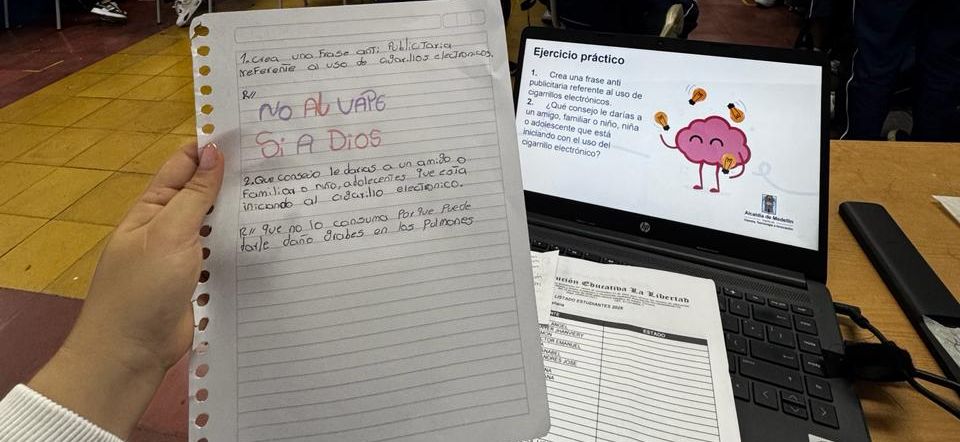 1. Crea una Frase anti Publicitaria
referente al uso de cigarrillos electronicos.
R//
NO AL VAPE
Si A Dios
2. Que consejo le darias a un amigo o
Familiar o niño, adolecentes que esta
iniciando al cigarrillo electronico.
R// que no lo consuma Porque Puede
darle daño grabes en los Pulmones
Ejercicio práctico
1. Crea una frase anti
publicitaria referente al uso de
cigarrillos electrónicos.
2. ¿Qué consejo le darías a
un amigo, familiar o niño, niña
o adolescente que está
iniciando con el uso del
cigarrillo electrónico?
Alcaldía de Medellín
hp
ución Educativa La Libertad
LISTADO ESTUDIANTES
ESTADO
ANGEL
JHANVIERY
TOR EMANUEL
ANABEL
ANDRES JOSE